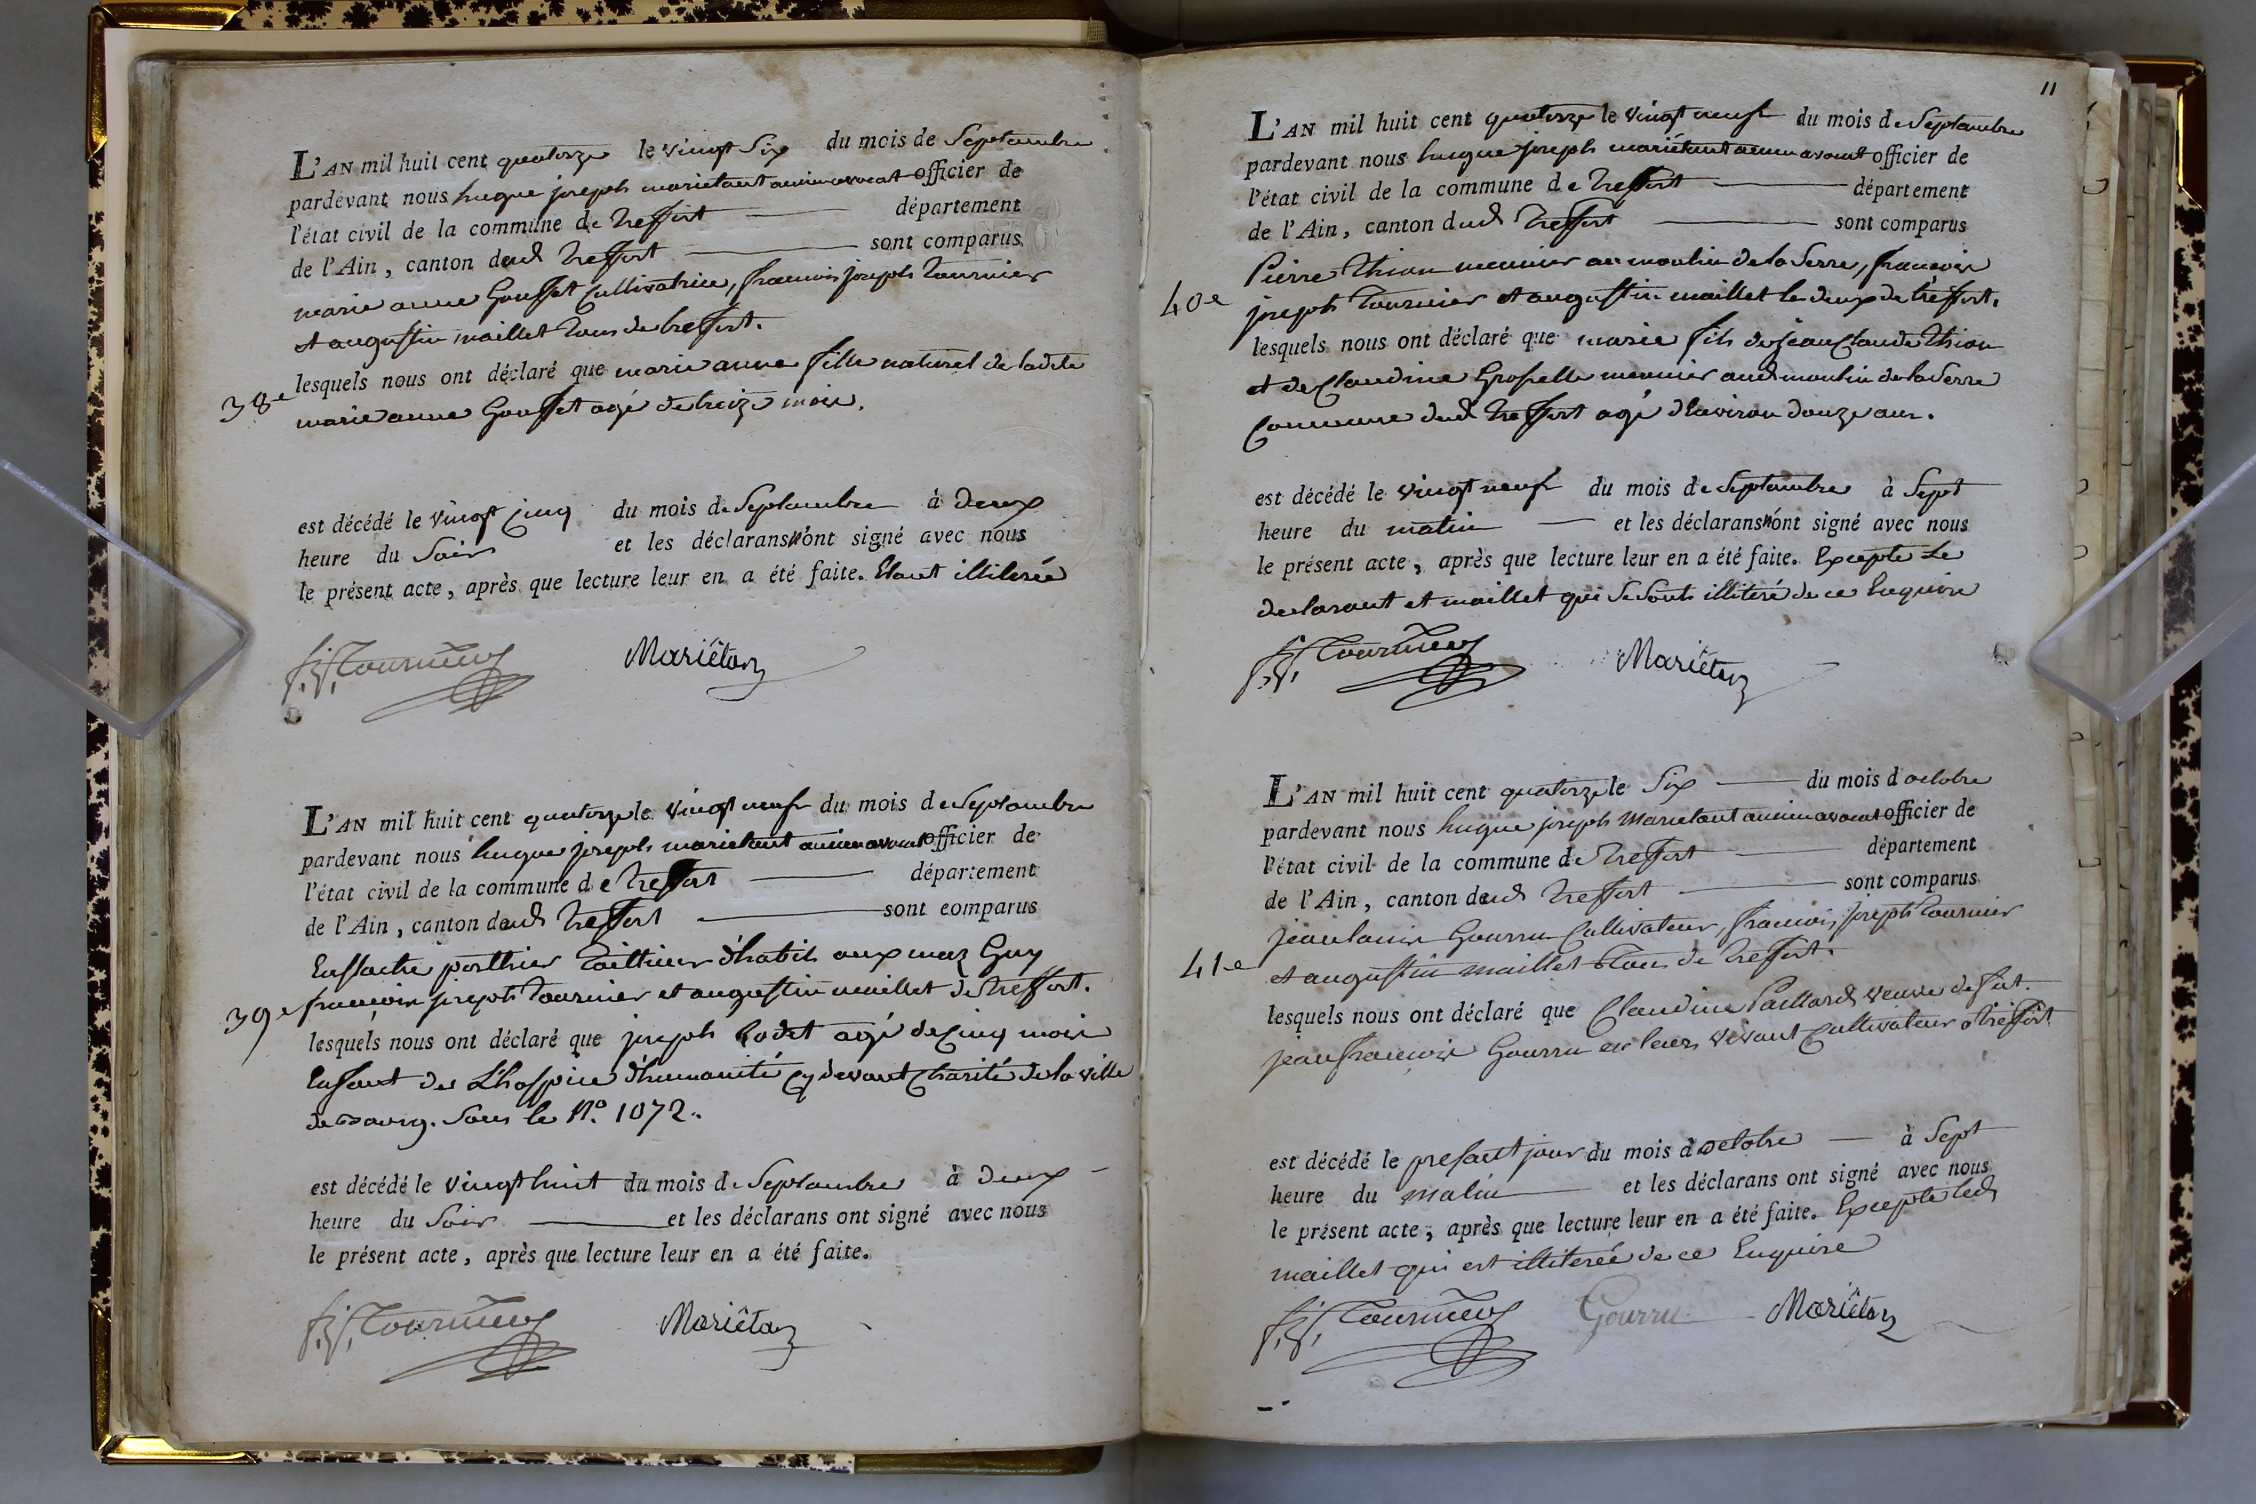 L'AN mil huit cent quatorze le vingt Six du mois de Septambre
pardevant nous hugue joseph marietant ancien avocat officier de
l'état civil de la commune de treffort département
de l'Ain, canton dud treffort sont comparus
marie anne Gousset Cultivatrice, francois joseph tournier
et augustin maillet tous de treffort.
38e
lesquels nous ont déclaré que marie anne fille naturel de ladite
marie anne Gousset agé de treize mois.
est décédé le vingt cinq du mois de Septambre à deux
heure du Soir et les déclarans n'ont signé avec nous
le présent acte, après que lecture leur en a été faite. Etant illiterée
f. j. Tournier Mariéton
L'AN mil huit cent quatorze le vingt neuf du mois de Septambre
pardevant nous hugue joseph marietant ancien avocat officier de
l'état civil de la commune de treffort département
de l'Ain, canton dud treffort sont comparus
Eustache porthier tailleur d'habit aux maz Guy
39e
françois joseph tournier et augustin maillet de treffort.
lesquels nous ont déclaré que joseph Rodet agé de Cinq mois
Enfant de L'hospice d'humanité Cy devant Charité de la ville
de Bourg. Sous le N.º 1072.
est décédé le vingt huit du mois de Septambre à deux
heure du Soir et les déclarans ont signé avec nous
le présent acte, après que lecture leur en a été faite.
f. j. Tournier Mariéton
11
L'AN mil huit cent quatorze le vingt neuf du mois de Septambre
pardevant nous hugue joseph mariétant ancien avocat officier de
l'état civil de la commune de treffort département
de l'Ain, canton dud treffort sont comparus
Pierre thion meunier au moulin de la Serre, françois
40e
joseph tournier et augustin maillet les deux de treffort.
lesquels nous ont déclaré que marie fils de jean Claude thion
et de Claudine Grospelle meunier aud moulin de la Serre
Commune dud treffort agé d'Environ douze ans.
est décédé le vingt neuf du mois de Septambre à Sept
heure du matin et les déclarans n'ont signé avec nous
le présent acte, après que lecture leur en a été faite. Excepte Le
declarant et maillet qui Se Sont illiteré de ce Enquire
f. j. Tournier Mariéton
L'AN mil huit cent quatorze le Six du mois d'octobre
pardevant nous hugue joseph Marietant ancien avocat officier de
l'état civil de la commune de treffort département
de l'Ain, canton dud treffort sont comparus
jean louis Gourru Cultivateur, francois joseph tournier
41e
et augustin maillet tous de treffort.
lesquels nous ont déclaré que Claudine Paillard veuve de fut.
jean francois Gourru en leurs vivant Cultivateur a treffort
est décédé le presant jour du mois d'octobre à Sept
heure du matin et les déclarans ont signé avec nous
le présent acte, après que lecture leur en a été faite. Excepte led
maillet qui est illiterée de ce Enquire
f. j. Tournier Gourru Mariéton